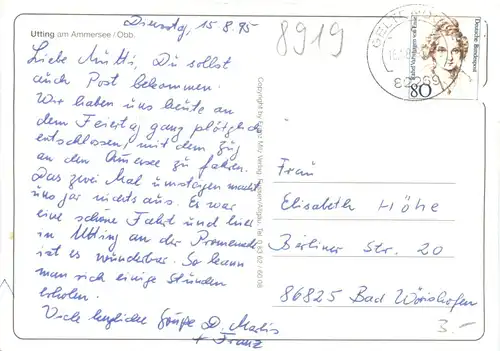 Dienstag, 15.8.95
Utting am Ammersee / Obb.
Liebe Mutti, Du sollst
auch Post bekommen.
Wir haben uns heute an
dem Feiertag ganz plötzlich
entschlossen, mit dem Zug
an den Ammersee zu fahren.
Das zwei Mal umsteigen macht
uns gar nichts aus. Es war
eine schöne Fahrt und hier
in Utting an der Promenade
ist es wunderbar. So kann
man sich einige Stunden
erholen.
Viele herzliche Grüße D. Marlis
+ Franz
8919
Deutsche Bundespost
80
82269
Copyright by Verlag
Frau
Elisabeth Höhe
Berliner Str. 20
86825 Bad Wörishofen
3.-